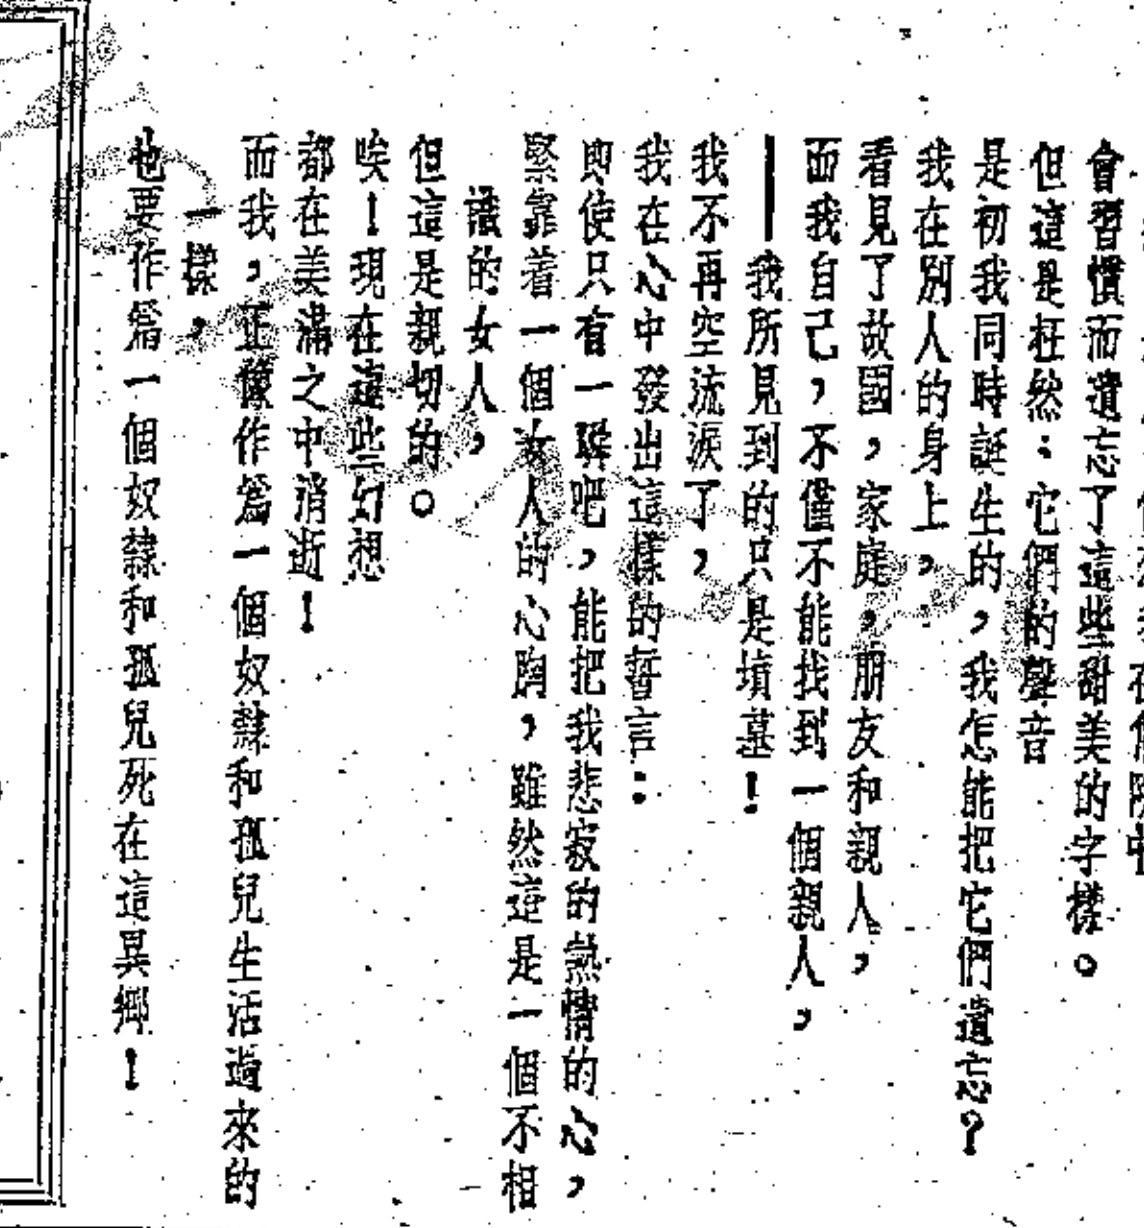 會習慣而遺忘了這些甜美的字樣。
但這是枉然：它們的聲音
是初我同時誕生的，我怎能把它們遺忘？
我在別人的身上，
看見了故國，家庭，朋友和親人，
面我自己，不僅不能找到一個親人，
——我所見到的只是墳墓！
我不再空流淚了，
我在心中發出這樣的誓言：
即使只有一瞬吧，能把我悲寂的熱情的心，
緊靠着一個女人的心胸，雖然這是一個不相
識的女人，
但這是親切的。
唉！現在這些幻想
都在美滿之中消逝！
而我，正像作爲一個奴隸和孤兒生活過來的
一樣，
也要作爲一個奴隸和孤兒死在這異鄉！